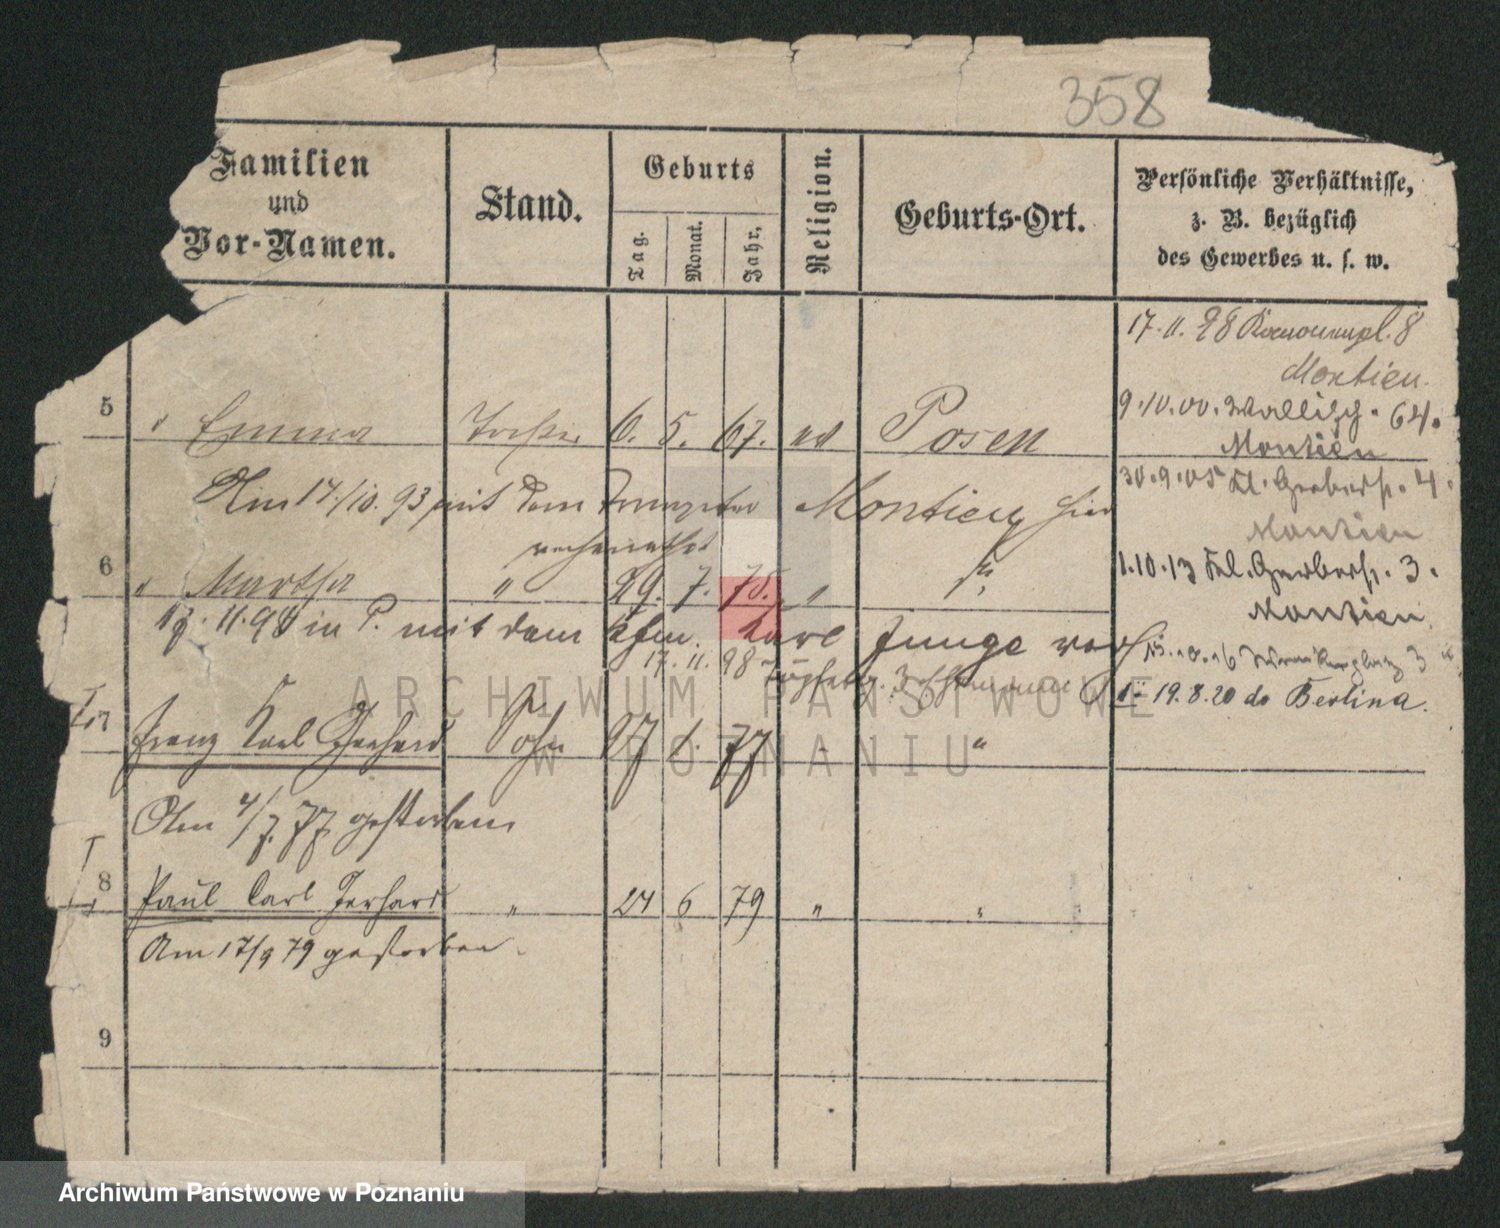 358
Familien
und
Vor-Namen.
Stand.
Geburts
Tag.
Monat.
Jahr,
Religion.
Geburts-Ort.
Persönliche Verhältnisse,
z. B. bezüglich
des Gewerbes u. s. w.
17. 11. 98 Kanonenpl. 8
Montieu.
9.10.00. Wallisch. 64.
Montieu
5 " Emma Tochter 6. 5. 67. ev Posen
30.9.05 Kl. Gerberstr. 4.
Am 17/10. 93 mit dem Trompeter Montieu hier
Montieu
verheirathet
1.10.13 Kl. Gerberstr. 3.
6 " Martha " 29. 7. 75. "
Montieu.
11.98 in P. mit dem Kfm. Karl Junge
17. 11. 98
19.8.20 do Berlina.
7 Franz Carl Gerhard Sohn 27 1. 77 "
Am 4/7. 77 gestorben
8 Paul Carl Gerhard " 24 6 79 " "
Am 17/9 79 gestorben.
9
ARCHIWUM PAŃSTWOWE
W POZNANIU
Archiwum Państwowe w Poznaniu